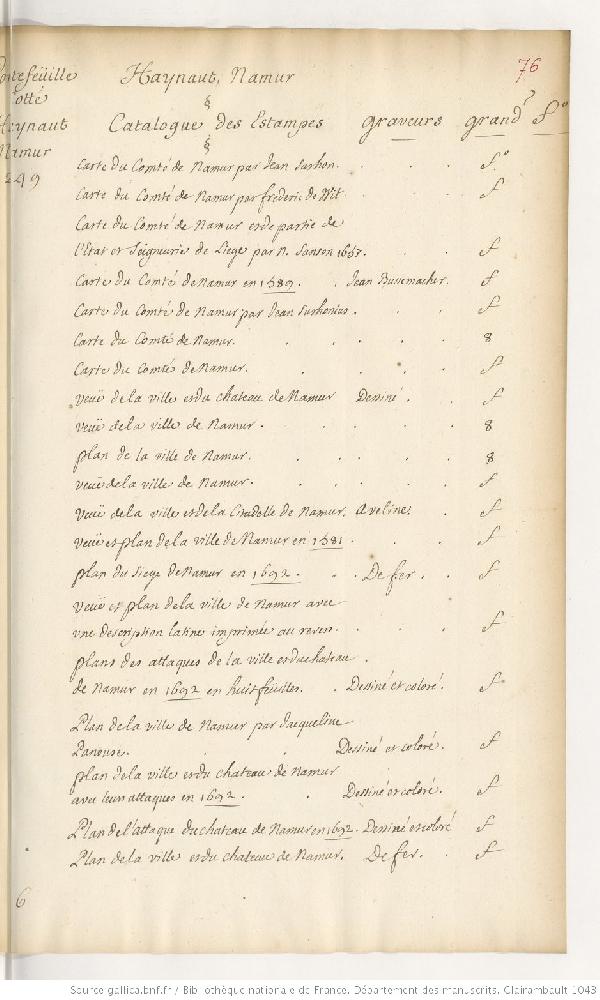 76
Portefeüille
Cotté
Haynaut
Namur
249
Haynaut, Namur
§
Catalogue des Estampes graveurs grandr fo
§
Carte du Comté de Namur par Jean Surhon. fo
Carte du Comté de Namur par frederic de Wit. f
Carte du Comté de Namur et de partie de
l'Etat et Seigneurie de Liege par N. Sanson f
Carte du Comté de Namur en 1589. Jean Bussemacher. f
Carte du Comté de Namur par Jean Surhonius. f
Carte du Comté de Namur. 8
Carte du Comté de Namur. f
veuë de la ville et du chateau de Namur Dessiné. f
veuë de la ville de Namur. 8
plan de la ville de Namur. 8
veuë de la ville de Namur. f
veuë de la ville et de la Citadelle de Namur. Aveline. f
veuë et plan de la ville de Namur en 1581. f
plan du Siege de Namur en 1692. De fer. f
veuë et plan de la ville de Namur avec
vne description latine imprimée au revers. f
plans des attaques de la ville et du chateau
de Namur en 1692 en huit feüilles. Dessiné et coloré. f
Plan de la ville de Namur par Jacqueline
Panouse. Dessiné et coloré. f
plan de la ville et du chateau de Namur
avec leurs attaques en 1692. Dessiné et coloré. f
Plan de l'attaque du chateau de Namur en 1692. Dessiné et coloré f
Plan de la ville et du chateau de Namur. De fer. f
6
Source gallica.bnf.fr / Bibliothèque nationale de France. Département des manuscrits. Clairambault 1043